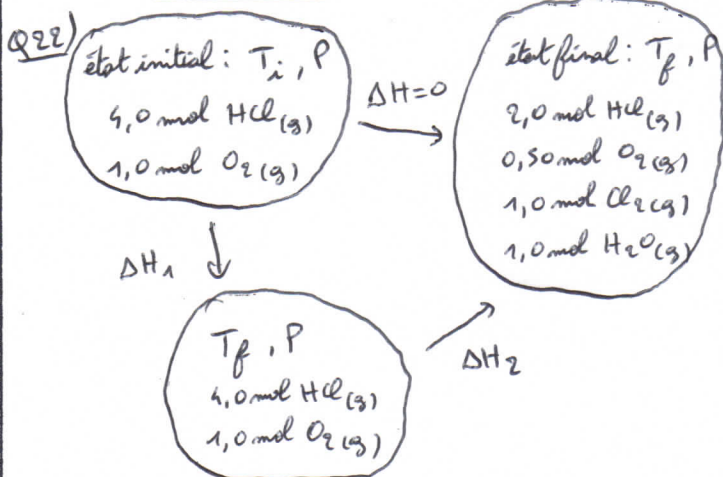 Q22)
état initial : Ti, P
4,0 mol HCl(g)
1,0 mol O2(g)
ΔH=0
état final : Tf, P
2,0 mol HCl(g)
0,50 mol O2(g)
1,0 mol Cl2(g)
1,0 mol H2O(g)
ΔH1
Tf, P
4,0 mol HCl(g)
1,0 mol O2(g)
ΔH2